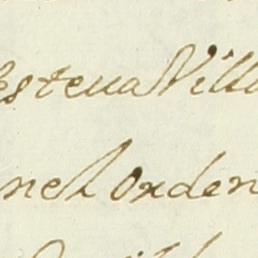 esteua Villa
nel orden